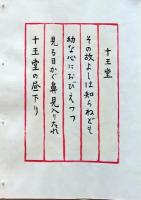 十王堂
その故よしは知らねども
幼な心におびえつつ
見る目かぐ鼻見入りたれ
十王堂の昼下り